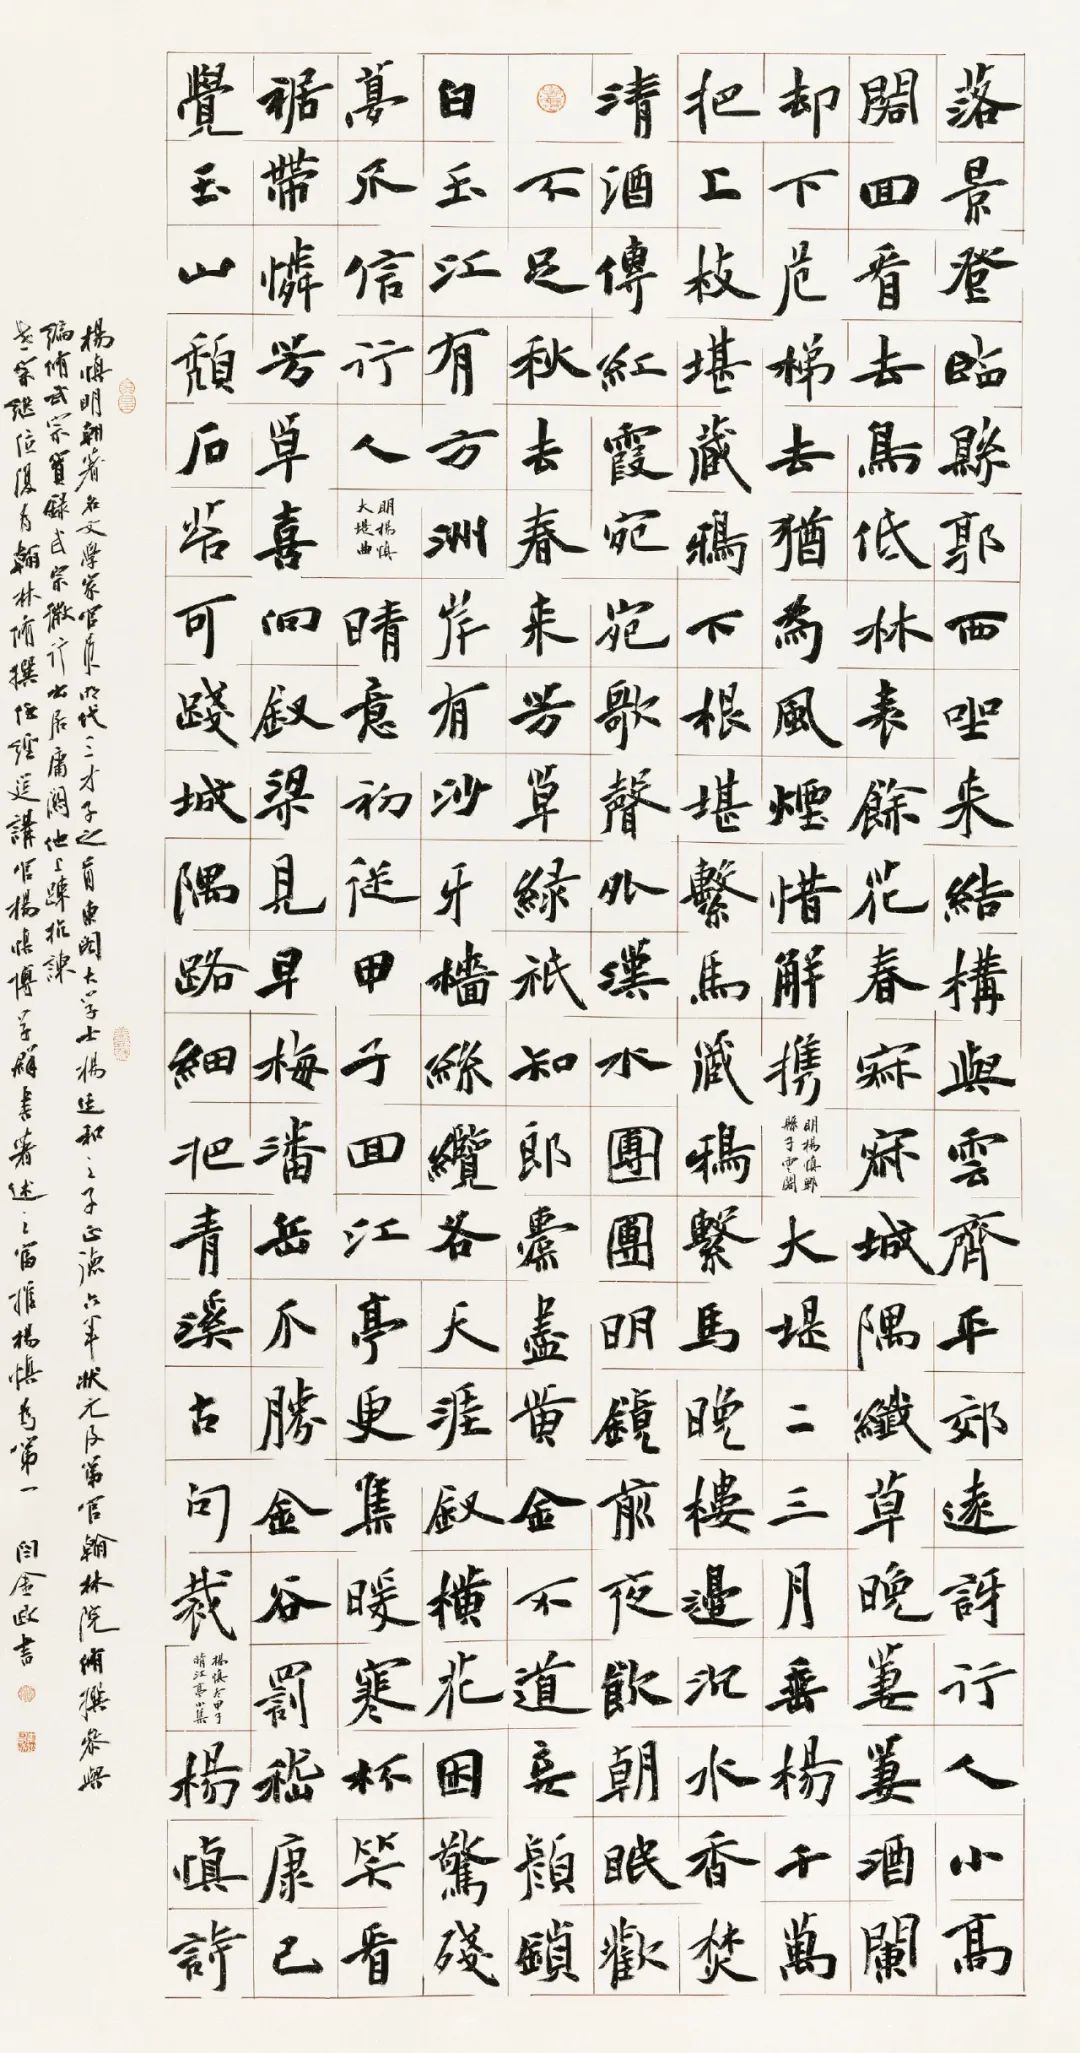 落景登臨縣郭西坐来結構與雲齊平郊遠訝行人小高
閣回看去鳥低林表餘花春寂寂城隅纖草晚萋萋酒闌
却下危梯去猶為風煙惜解携
明楊慎郫
縣子雲閣
大堤二三月垂楊千萬
把上枝堪藏鴉下根堪繫馬藏鴉繫馬晚樓邊沉水香焚
清酒傳紅霞宛宛歌聲外漢水團團明鏡前夜飲朝眠歡
不足秋去春来芳草綠祇知郎橐盡黃金不道妾顏鎖
白玉江有方洲岸有沙牙檣絲纜各天涯釵橫花困驚殘
夢不信行人
明楊慎
大堤曲
晴意初從甲子回江亭更集暖寒杯笑看
裾帶憐芳草喜向釵梁見早梅潘岳不勝金谷罰嵇康已
覺玉山頹石苔可踐城隅路細把青溪古句裁
楊慎冬甲子
晴江亭小集
楊慎詩
楊慎明朝著名文學家官員明代三才子之首東閣大学士楊廷和之子正德六年狀元及第官翰林院脩撰參與
編脩武宗實録武宗微行出居庸關他上疏抗諫
世宗繼位復為翰林脩撰任經筵講官楊慎博学群書著述之富推楊慎為第一 閆金政書